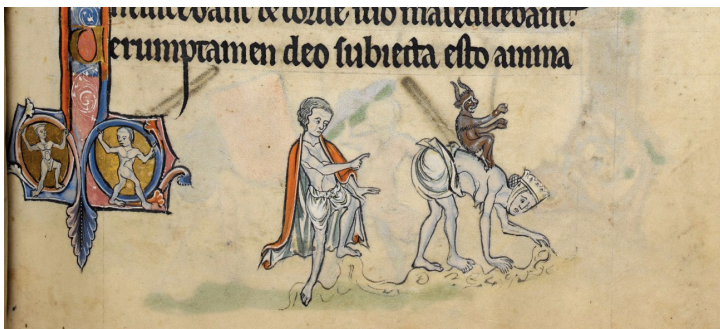 nedicebant & corde suo maledicebant.
Uerumptamen deo subiecta esto anima